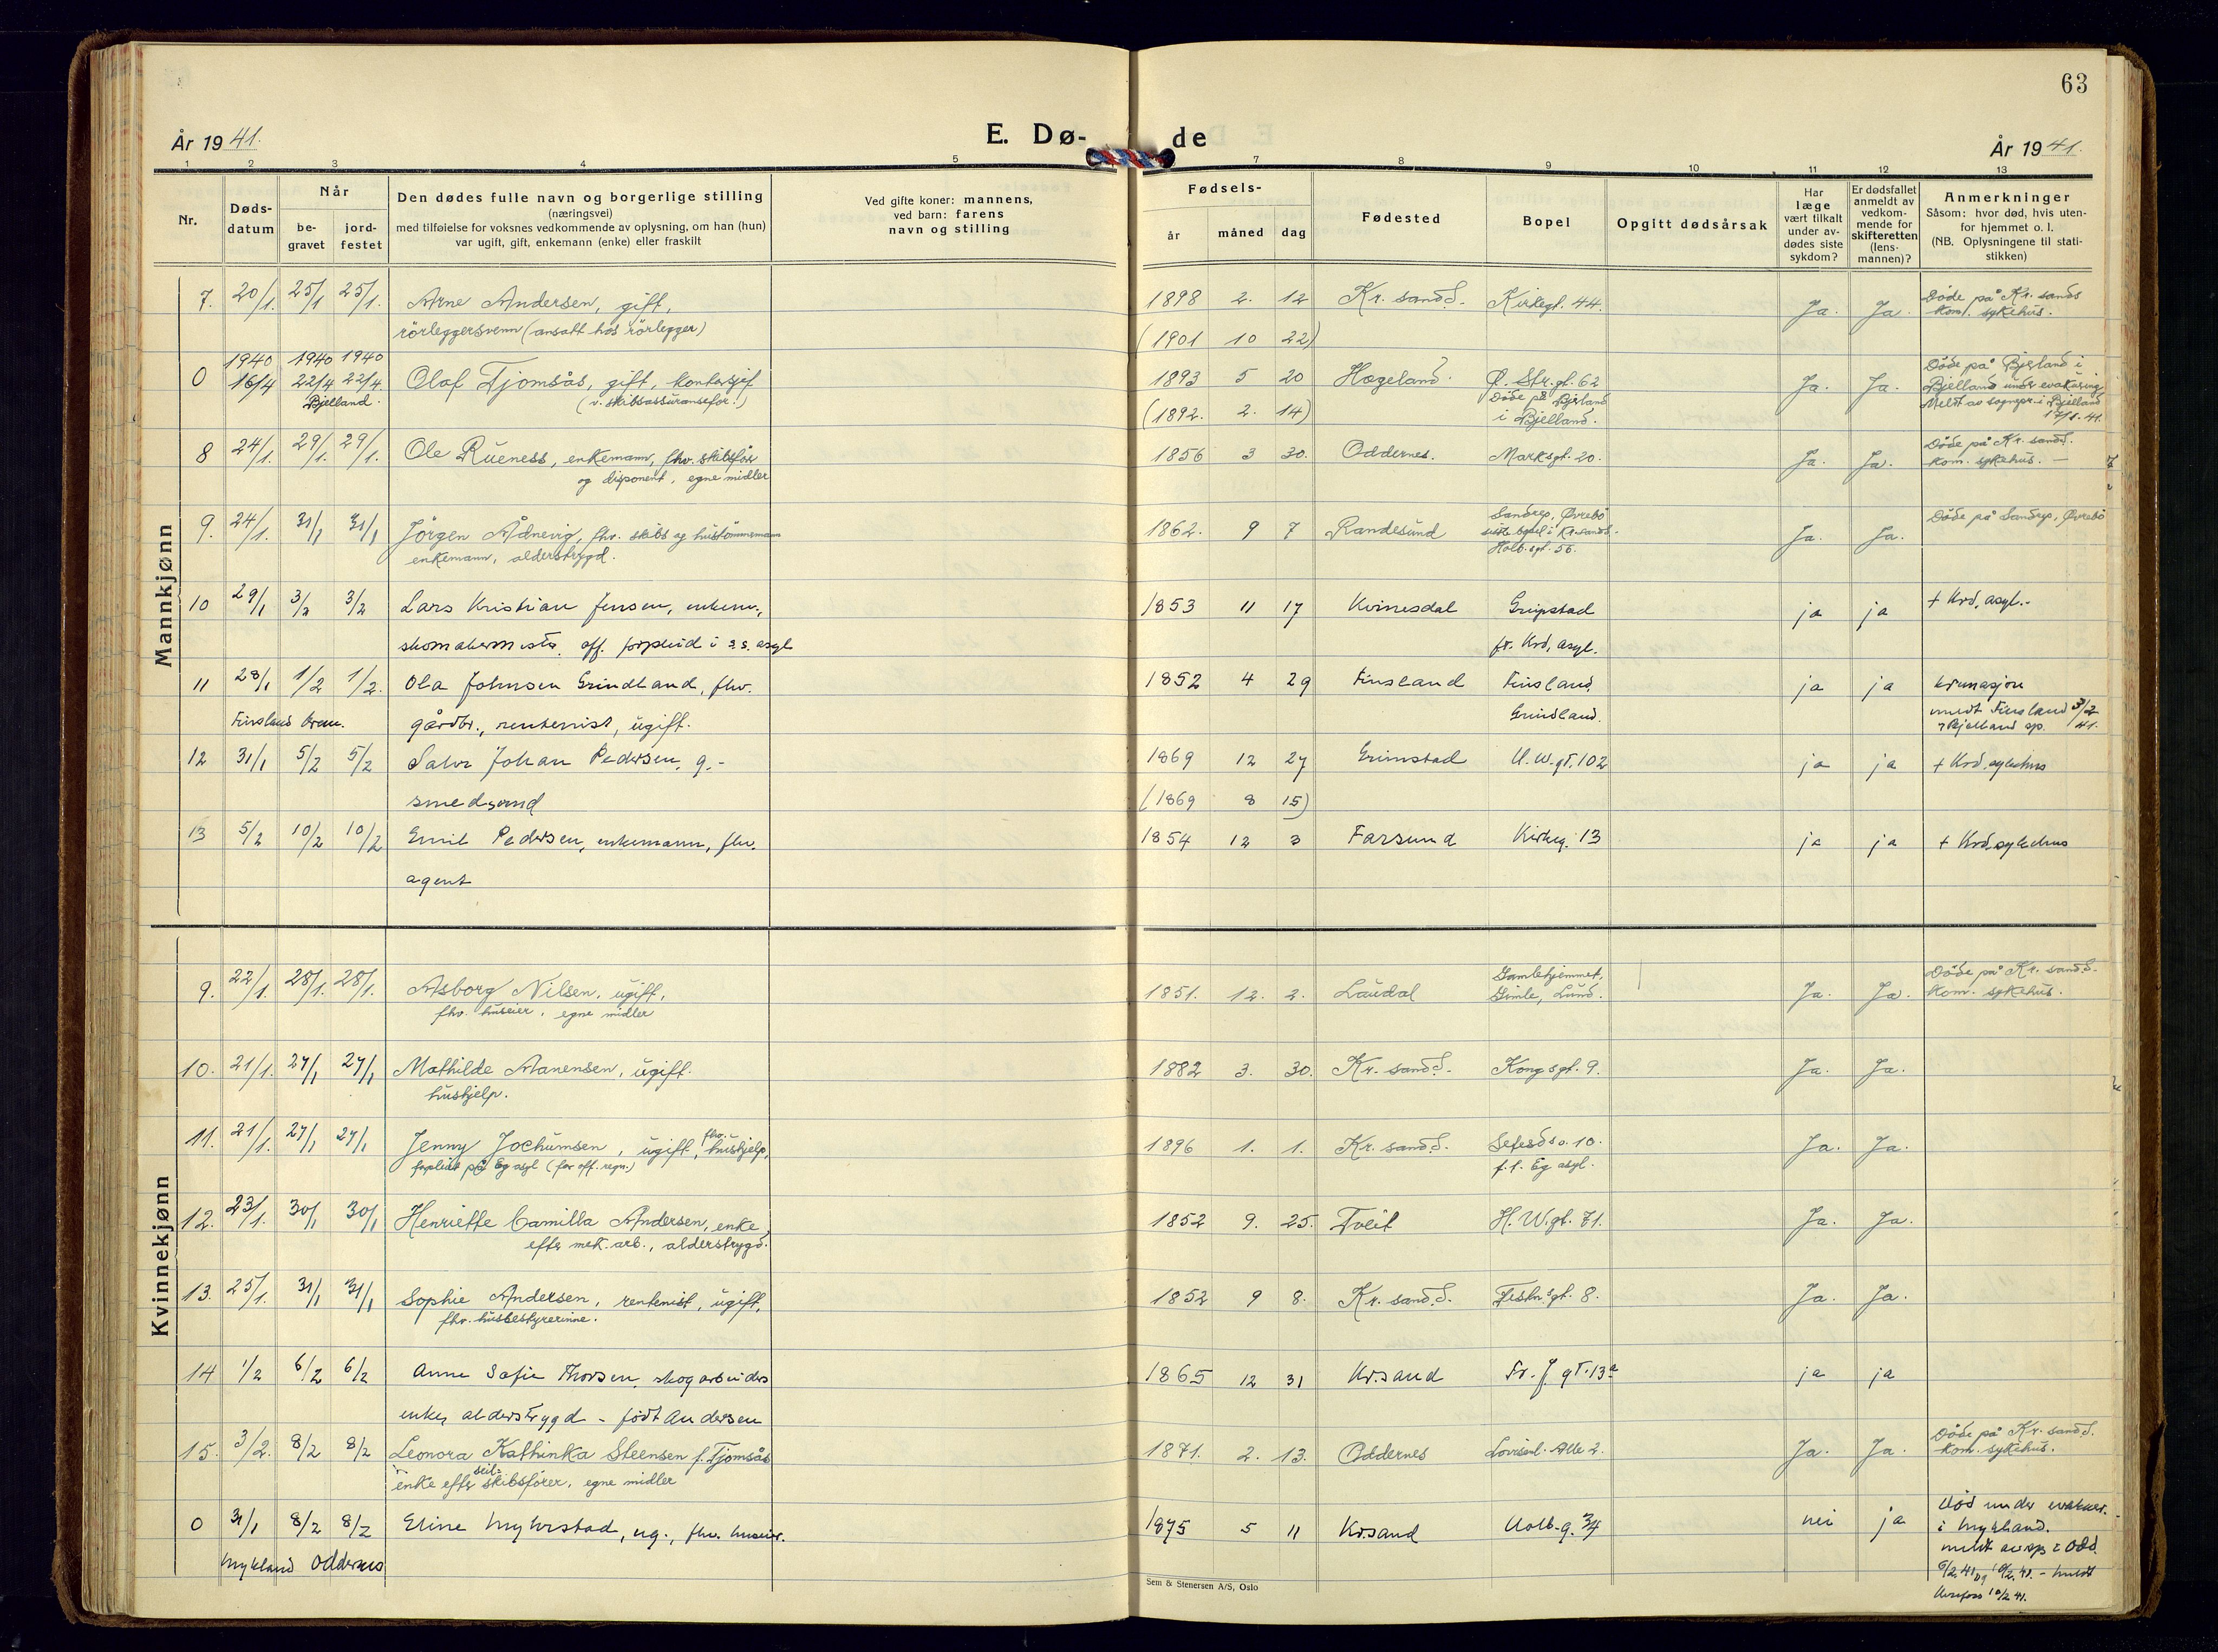 63
År 1941.
E. Dø-
de
År 1941.
1 2 3 4 5 7 8 9 10 11 12 13
Nr.
Døds-
datum
Når
be-
gravet
jord-
festet
Den dødes fulle navn og borgerlige stilling
(næringsvei)
med tilføielse for voksnes vedkommende av oplysning, om han (hun)
var ugift, gift, enkemann (enke) eller fraskilt
Ved gifte koner: mannens,
ved barn: farens
navn og stilling
Fødsels-
år måned dag
Fødested
Bopel
Opgitt dødsårsak
Har
læge
vært tilkalt
under av-
dødes siste
sykdom?
Er dødsfallet
anmeldt av
vedkom-
mende for
skifteretten
(lens-
mannen)?
Anmerkninger
Såsom: hvor død, hvis uten-
for hjemmet o. l.
(NB. Oplysningene til stati-
stikken)
Mannkjønn
7. 20/1. 25/1 25/1. Arne Andersen, gift, 1898 2. 12 Kr. sand S. Kirkegt. 44. Ja. Ja. Döde på Kr. sands
kom. sykehus.
rörleggersvenn (ansatt hos rörlegger) (1901 10 22)
1940 1940 1940
0 16/4 22/4 22/4. Olaf Tjomsås, gift, kontorsjef 1893 5 20 Hægeland. Ø. Str. gt. 62 Ja. Ja. Döde på Bjerland i
Bjelland under evakuering
Bjelland. (v. skibsassuransefor.) (1892. 2. 14) Döde på Bjerland
i Bjelland.
Meldt av sognepr. i Bjelland
17/1-41.
8 24/1. 29/1. 29/1. Ole Rueness, enkemann, fhv. skibsfør 1856 3 30. Oddernes. Marksgt. 20. Ja. Ja. Döde på Kr. sand S.
kom. sykehus. —
og disponent, egne midler
9. 24/1. 31/1 31/1 Jörgen Ådnevig, fhv. skibs og hustömmermann 1862. 9 7 Randesund Sandrep, Øvrebö Ja. Ja. Döde på Sandrep, Øvrebö
siste bopel i Kr. sand S.
Holb. gt. 56.
enkemann, alderstrygd.
10 29/1 3/2 3/2 Lars Kristian Jensen, enkem., 1853 11 17 Kvinesdal Gripstad ja ja + Krd. asyl.-
skomakermester, off. forpleid i s.s. asyl fr. Krd. asyl.
11 28/1 1/2 1/2. Ola Johnsen Grindland, fhv. 1852 4 29 Finsland Finsland, ja ja kremasjon
Finsland Krem. gårdbr., rentenist, ugift. Grindland. meldt Finsland 3/2
Bjelland sp. 41.
12 31/1 5/2 5/2 Salve Johan Pedersen, g.- 1869 12 27 Grimstad H. W. gt. 102 ja ja + Krd. sykehus
smedsvend (1869 8 15)
13 5/2 10/2 10/2 Emil Pedersen, enkemann, fhv. 1854 12 3 Farsund Kirkeg. 13 ja ja + Krd. sykehus
agent
Kvinnekjønn
9. 22/1. 28/1. 28/1. Asborg Nilsen, ugift, 1851. 12. 2. Laudal Gamlehjemmet,
Gimle, Lund. Ja. Ja. Döde på Kr. sand S.
kom. sykehus.
fhv. huseier, egne midler
10. 21/1. 27/1 27/1 Mathilde Aanensen, ugift. 1882 3. 30. Kr. sand S. Kongsgt. 9. Ja. Ja.
hushjelp.
11. 21/1. 27/1 27/1 Jenny Jochumsen, ugift, fhv. hushjelp, 1896 1. 1. Kr. sand S. Setesd. 10. Ja. Ja.
forpleiet på Eg asyl (for off. regn.) f. t. Eg asyl.
12. 23/1. 30/1 30/1 Henriette Camilla Andersen, enke 1852 9. 25. Tveit H. W. gt. 71. Ja. Ja.
efter mek. arb., alderstrygd.
13. 25/1. 31/1 31/1 Sophie Andersen, rentenist, ugift, 1852 9 8. Kr. sand S. Festn. gt. 8. Ja. Ja.
fhv. husbestyrerinne.
14 1/2 6/2 6/2 Anne Sofie Thorsen, skogarbeiders 1865 12 31 Kr.sand Fr. J gt. 13a ja ja
enke, alderstrygd - født Andersen
15. 3/2. 8/2 8/2 Leonora Kathinka Steensen f. Tjomsås 1871. 2. 13. Oddernes Lovisenl. Alle 2. Ja. Ja. Döde på Kr. sand S.
kom. sykehus.
enke efter seil-skibsfører, egne midler
0 31/1 8/2 8/2 Eline Myhrstad, ug., fhv. huseier. 1875 5 11 Kr.sand Holb. g. 34 nei ja Död under evakuer.
i Mykland.
Mykland Oddernes meldt av sp i Odd.
6/2.41 og 10/2.41. - meldt
10/2 41.
Sem & Stenersen A/S, Oslo